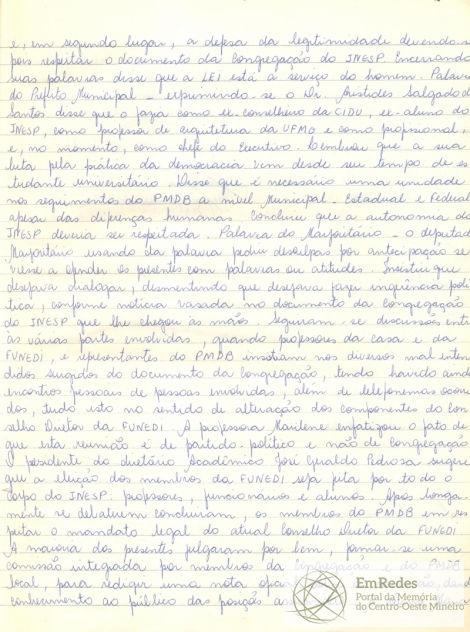 e, em segundo lugar, a defesa da legitimidade devendo-s
pois respeitar o documento da Congregação do INESP. Encerrando
suas palavras disse que a LEI está a serviço do homem. Palavra
do Prefeito Municipal - exprimindo-se o Dr. Aristides Salgado d
Santos disse que o fazia como ex-conselheiro da CIDU, ex-aluno do
INESP, como professor de arquitetura da UFMG e como profissional
e, no momento, como chefe do Executivo. Lembrou que a sua
luta pela prática da democracia vem desde seu tempo de es
tudante universitário. Disse que é necessário uma unidade
nos seguimentos do PMDB a nível Municipal - Estadual e Federal
apesar das diferenças humanas. Concluiu que a autonomia do
INESP deveria ser respeitada. Palavra do Majoritário - o deputado
Majoritário usando da palavra pediu desculpas por antecipação se
viesse a ofender os presentes com palavras ou atitudes. Insistiu que
desejava dialogar, desmentindo que desejava fazer ingerência polí
tica, conforme notícia vasada no documento da Congregação
do INESP que lhe chegou às mãos. Seguiram-se discussões entre
às várias partes envolvidas, quando professores da casa e da
FUNEDI, e representantes do PMDB insistiam nos diversos mal enten
didos surgidos do documento da Congregação, tendo havido ainda
encontros pessoais de pessoas envolvidas, além de telefonemas ocorri
dos, tudo isto no sentido de alteração dos componentes do Con
selho Diretor da FUNEDI. A professora Marilene enfatizou o fato de
que esta reunião é de partido-político e não de Congregação
O presidente do diretório Acadêmico José Geraldo Pedrosa sugere
que a eleição dos membros da FUNEDI seja feita por todo o
corpo do INESP: professores, funcionários e alunos. Após longa
mente se debaterem concluíram, os membros do PMDB em res
peitar o mandato legal do atual Conselho Diretor da FUNEDI
A maioria dos presentes julgaram por bem, formar-se uma
comissão integrada por membros da Congregação e do PMDB
local, para redigir uma nota
conhecimento ao público das posições
EmRedes
Portal da Memória
do Centro-Oeste Mineiro